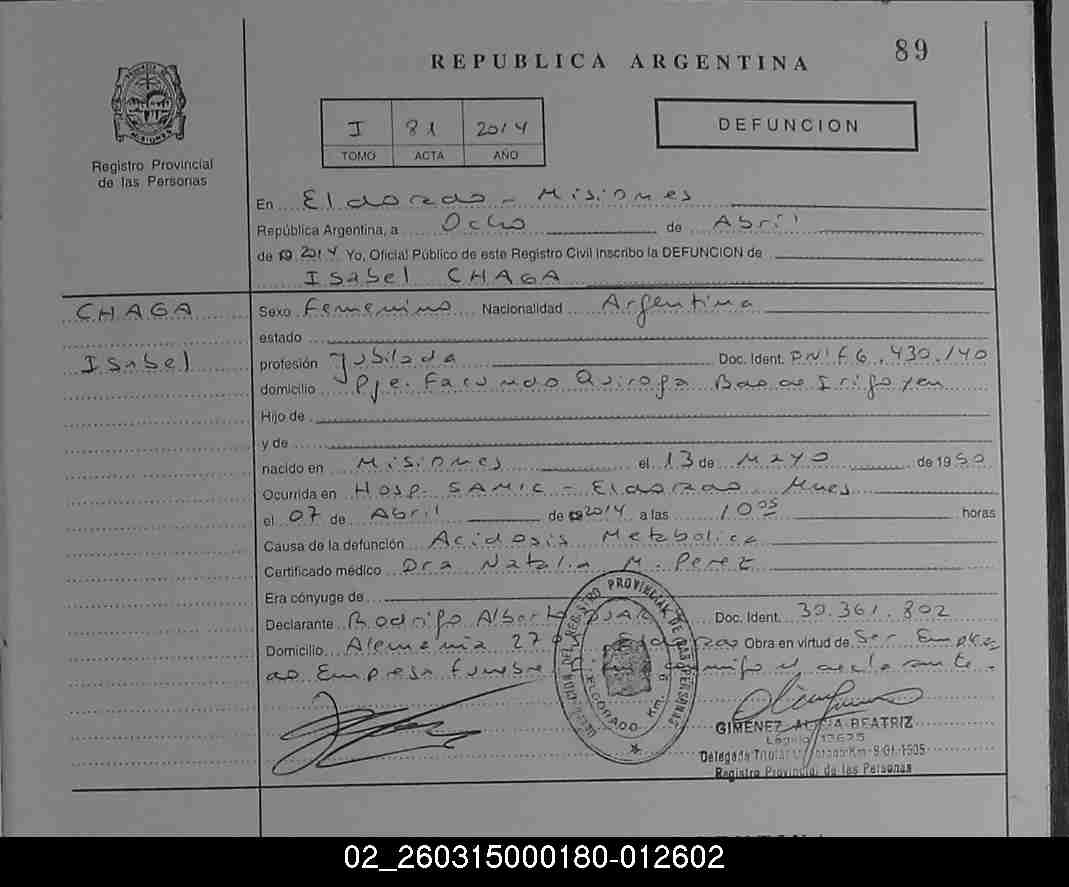 89
REPUBLICA ARGENTINA
I 81 2014
TOMO ACTA AÑO
DEFUNCION
Registro Provincial
de las Personas
En Eldorado - Misiones
República Argentina, a Ocho de Abril
de 2014 Yo, Oficial Público de este Registro Civil inscribo la DEFUNCION de
Isabel CHAGA
CHAGA
Isabel
Sexo Femenino Nacionalidad Argentina
estado
profesión Jubilada Doc. Ident. DNI F6.430.140
domicilio Pje. Facundo Quiroga Bdo de Irigoyen
Hijo de
y de
nacido en Misiones el 13 de Mayo de 1950
Ocurrida en Hosp. SAMIC - Eldorado Mnes
el 07 de Abril de 2014 a las 10 05 horas
Causa de la defunción Acidosis Metabolica
Certificado médico Dra Natalia M. Perez
Era cónyuge de
Declarante Rodrigo Alberto Doc. Ident. 30.361.802
Domicilio Alemania 27 Eldorado Obra en virtud de Ser Emplea
do Empresa funebre el declarante.
DELEGACION DEL REGISTRO PROVINCIAL DE LAS PERSONAS
ELDORADO Km 9
GIMENEZ ALICIA BEATRIZ
Delegada Titular Eldorado Km-9 Of. 1505
Registro Provincial de las Personas
02_260315000180-012602